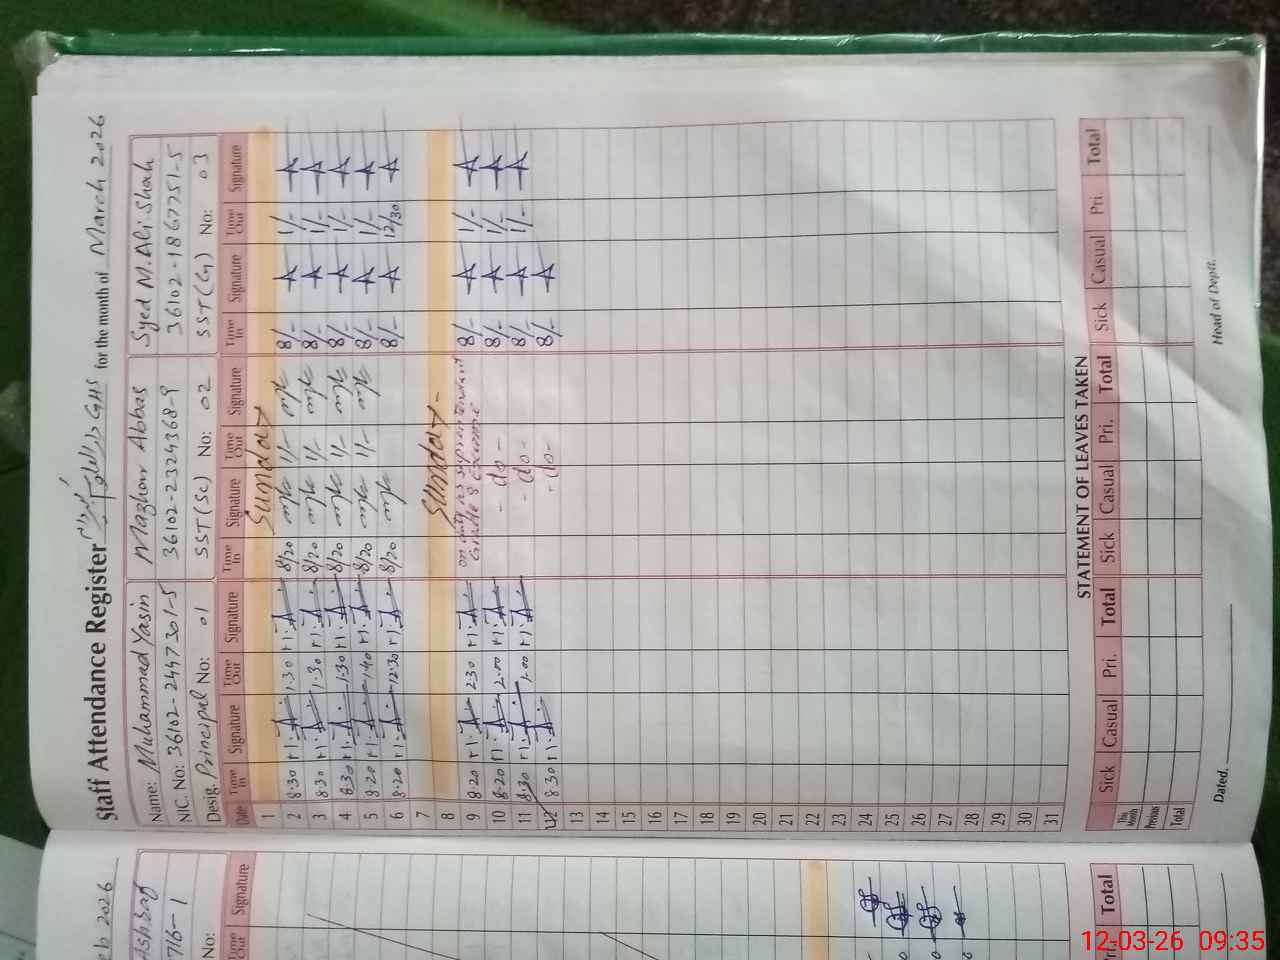 Staff Attendance Register GHS for the month of March 2026
Name: Muhammad Yasin Mazhar Abbas Syed M. Ali Shah
NIC. No: 36102-2447301-5 36102-2324368-9 36102-1867751-5
Desig. Principal No: 01 SST(Sc) No: 02 SST(G) No: 03
Date Time In Signature Time Out Signature Time In Signature Time Out Signature Time In Signature Time Out Signature
1 Sunday
2 8:30 1:30 8/20 1/- 8/- 1/-
3 8:30 1:30 8/20 1/- 8/- 1/-
4 8:30 1:30 8/20 1/- 8/- 1/-
5 8:20 1:40 8/20 1/- 8/- 1/-
6 8:20 12:30 8/20 8/- 12/30
7
8 Sunday -
9 8:20 2:30 on duty as superintendent 8/- 1/-
Grade 8 Exam
10 8:20 2:00 - do - 8/- 1/-
11 8:30 1:00 - do - 8/- 1/-
12 8:30 - do - 8/-
13
14
15
16
17
18
19
20
21
22
23
24
25
26
27
28
29
30
31
STATEMENT OF LEAVES TAKEN
Sick Casual Pri. Total Sick Casual Pri. Total Sick Casual Pri. Total
This Month
Previous
Total
Dated. Head of Deptt.
eb 2026
Ashraf
716-1
No:
Time Out Signature
Pri. Total
12-03-26 09:35